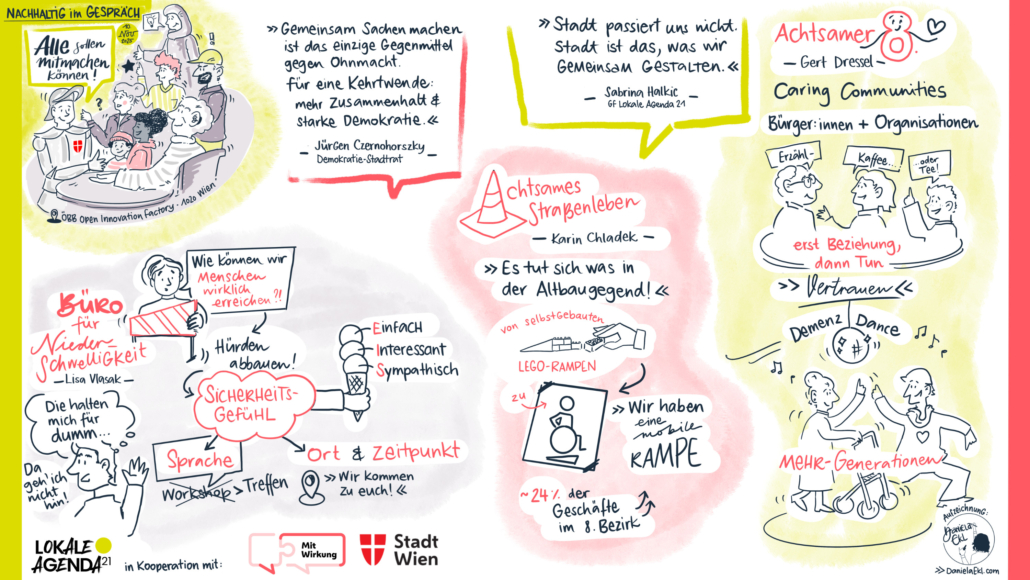 NACHHALTIG im GESPRÄCH
10. Nov 2025
Alle sollen
mitmachen
können!
?
!
ÖBB Open Innovation Factory - 1020 Wien
» Gemeinsam Sachen machen
ist das einzige Gegenmittel
gegen Ohnmacht.
für eine Kehrtwende:
mehr Zusammenhalt &
starke Demokratie. «
— Jürgen Czernohorszky —
Demokratie-Stadtrat
» Stadt passiert uns nicht.
Stadt ist das, was wir
GEMEINSAM GESTALTEN. «
— Sabrina Halkic —
GF Lokale Agenda 21
Achtsamer 8.
— Gert Dressel —
Caring Communities
Bürger:innen + Organisationen
Erzähl-
Kaffee....
...oder
Tee!
erst Beziehung,
dann Tun
>> Vertrauen <<
Demenz Dance
#
MEHR-Generationen
Achtsames
Straßenleben
— Karin Chladek —
» Es tut sich was in
der Altbaugegend! «
von selbstgebauten
LEGO-RAMPEN
zu
» Wir haben
eine
mobile
RAMPE
~24% der
Geschäfte
im 8. Bezirk
BÜRO
für
Nieder-
Schwelligkeit
— Lisa Vlasak —
Wie können wir
Menschen
wirklich
erreichen?!
Hürden
abbauen!
EINFACH
Interessant
Sympathisch
SICHERHEITS-
GEFÜHL
Sprache
Workshop > Treffen
Ort & Zeitpunkt
» Wir kommen
zu euch! «
Die halten
mich für
dumm...
Da
geh ich
nicht
hin!
LOKALE
AGENDA 21
in Kooperation mit:
Mit
Wirkung
Stadt
Wien
Aufzeichnung:
Daniela
Ekl
>> DanielaEkl.com